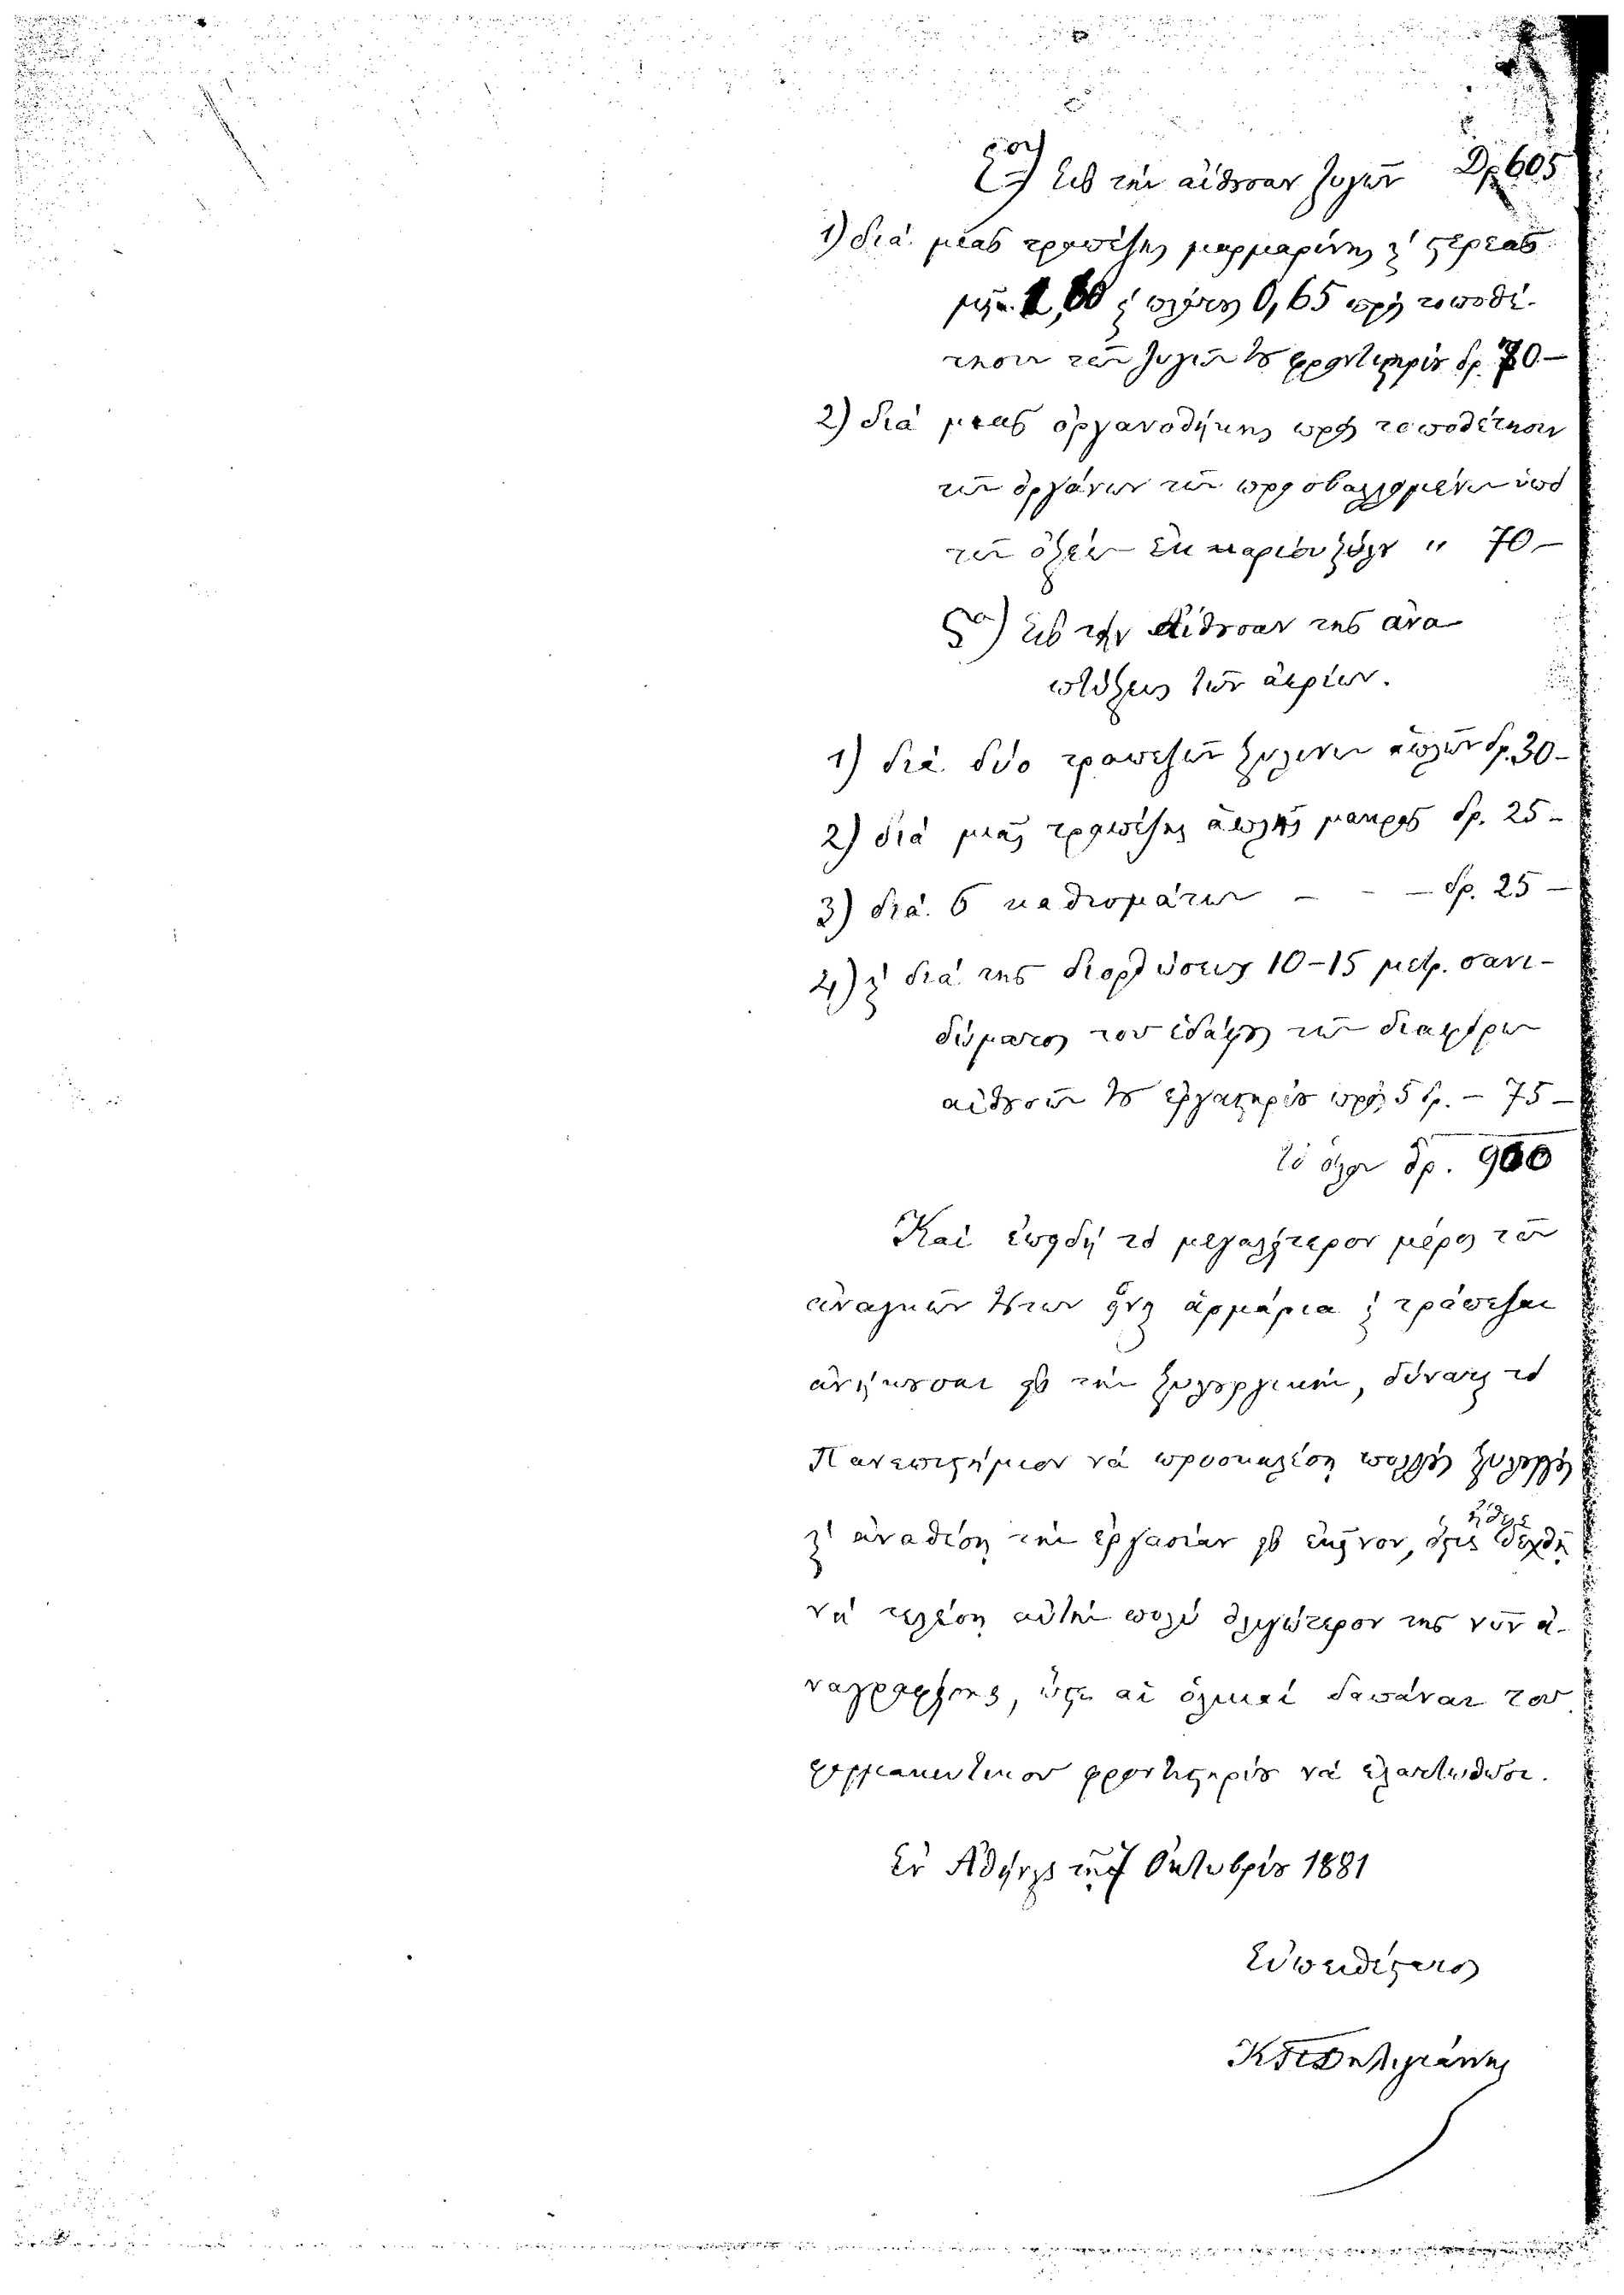 Εἰς τὴν αἴθουσαν ζυγῶν Δρ 605
1) διὰ μιᾶς τραπέζης μαρμαρίνης κ' στερεᾶς
μήκ. 1,60 κ' πλάτους 0,65 πρὸς τοποθέ-
τησιν τῶν ζυγῶν τοῦ φροντιστηρίου δρ. 70 –
2) διὰ μιᾶς ὀργανοθήκης πρὸς τοποθέτησιν
τῶν ὀργάνων τῶν προσβαλλομένων ὑπὸ
τῶν ὀξέων ἐκ καρίου ξύλου " 70 –
Ϛον) Εἰς τὴν Αἴθουσαν τῆς ἀνα
πτύξεως τῶν ἀερίων.
1) διὰ δύο τραπεζῶν ξυλίνων ἁπλῶν δρ. 30 –
2) διὰ μιᾶς τραπέζης ἁπλῆς μακρᾶς δρ. 25 –
3) διὰ 6 καθισμάτων – – – δρ. 25 –
4) κ' διὰ τῆς διορθώσεως 10–15 μετρ. σανι-
δώματος τοῦ ἐδάφους τῶν διαφόρων
αἰθουσῶν τοῦ ἐργαστηρίου πρὸς 5 δρ. – 75 –
τὸ ὅλον δρ. 900
Καὶ ἐπειδὴ τὸ μεγαλήτερον μέρος τῶν
ἀναγκῶν τούτων ὅπως ἁρμάρια κ' τράπεζαι
ἀνήκουσαι εἰς τὴν ξυλουργικὴν, δύναται τὸ
Πανεπιστήμιον νὰ προσκαλέσῃ πολλοὺς ξυλουργοὺς
κ' ἀναθέσῃ τὴν ἐργασίαν εἰς ἐκεῖνον, ὅστις ἤθελε δεχθῆ
νὰ τελέσῃ αὐτὴν πολὺ ὀλιγώτερον τῆς νῦν ἀ-
ναγραφείσης, ὥστε αἱ ὁλικαὶ δαπάναι τοῦ
φαρμακευτικοῦ φροντιστηρίου νὰ ἐλαττωθῶσι.
Ἐν Ἀθήναις τῇ 7 Ὀκτωβρίου 1881
Εὐπειθέστατος